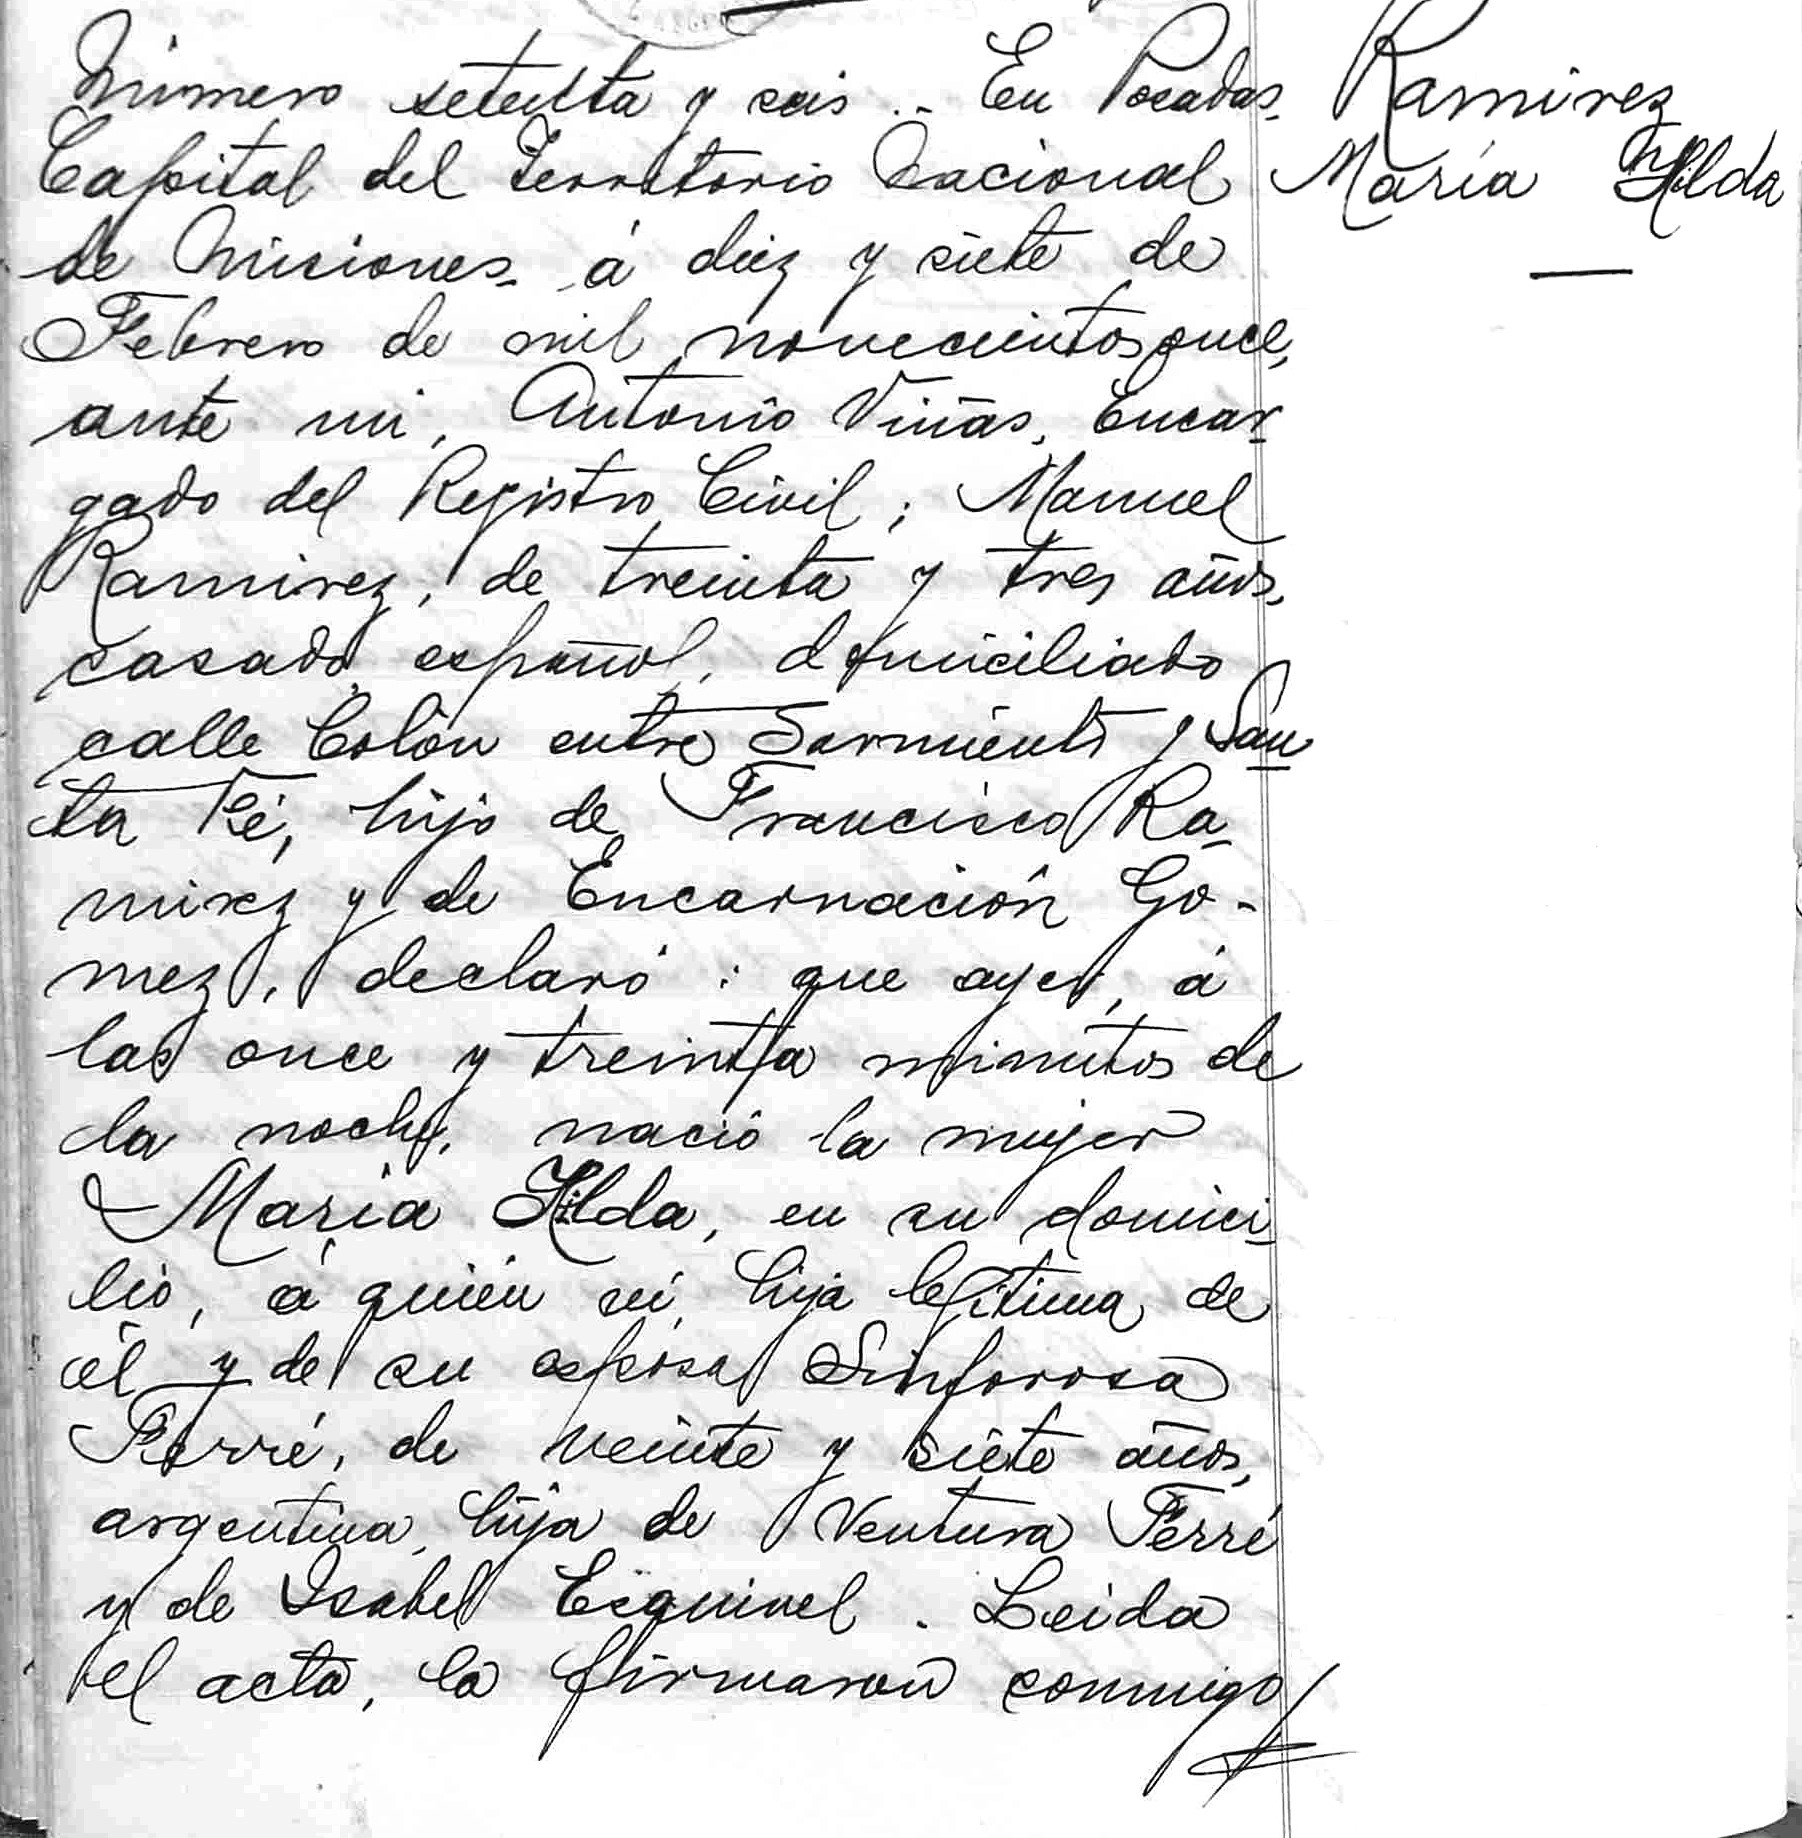 Número setenta y seis .- En Posadas.
Capital del Territorio Nacional
de Misiones, á diez y siete de
Febrero de mil novecientos once,
ante mi, Antonio Viñas, Encar-
gado del Registro Civil; Manuel
Ramirez, de treinta y tres años,
casado, español, domiciliado
calle Colón entre Sarmiento y San-
ta Fé, hijo de Francisco Ra-
mirez y de Encarnación Go-
mez, declaró: que ayer, á
las once y treinta minutos de
la noche, nació la mujer
María Hilda, en su domici-
lio, á quién ví, hija legítima de
él y de su esposa Sinforosa
Ferré, de veinte y siete años,
argentina, hija de Ventura Ferré
y de Isabel Esquivel. Leida
el acta, la firmaron conmigo
Ramirez
María Hilda